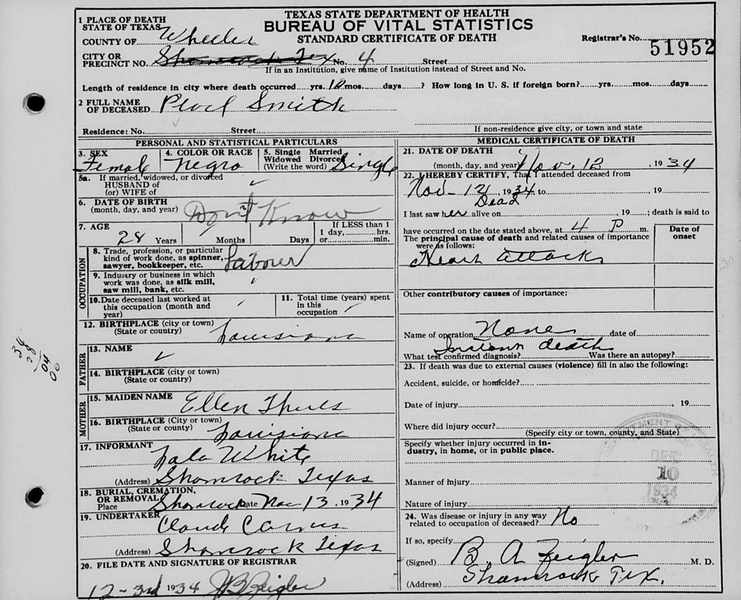 TEXAS STATE DEPARTMENT OF HEALTH
BUREAU OF VITAL STATISTICS
STANDARD CERTIFICATE OF DEATH
Registrar's No. 51952
1 PLACE OF DEATH
STATE OF TEXAS
COUNTY OF Wheeler
CITY OR
PRECINCT NO. Shamrock Tex No. 4 Street
If in an Institution, give name of Institution instead of Street and No.
Length of residence in city where death occurred yrs. 10 mos. days? How long in U. S. if foreign born? yrs. mos. days.
2 FULL NAME
OF DECEASED Smith
Residence: No. Street
If non-residence give city, or town and state
PERSONAL AND STATISTICAL PARTICULARS
3. SEX Female
4. COLOR OR RACE Negro
5. Single Married Widowed Divorced (Write the word) Single
5a. If married, widowed, or divorced
HUSBAND of
(or) WIFE of
6. DATE OF BIRTH
(month, day, and year) Dont Know
7. AGE 28 Years Months Days
If LESS than 1
1 day, hrs.
or min.
OCCUPATION
8. Trade, profession, or particular
kind of work done, as spinner,
sawyer, bookkeeper, etc. Labour
9. Industry or business in which
work was done, as silk mill,
saw mill, bank, etc.
10. Date deceased last worked at
this occupation (month and
year)
11. Total time (years) spent
in this
occupation
12. BIRTHPLACE (city or town)
(State or country) Louisiana
FATHER
13. NAME
14. BIRTHPLACE (City or town)
(State or country)
MOTHER
15. MAIDEN NAME Ellen
16. BIRTHPLACE (City or town)
(State or country) Louisiana
17. INFORMANT Lala White
(Address) Shamrock Texas
18. BURIAL, CREMATION,
OR REMOVAL
Place Shamrock Date Nov 13 1934
19. UNDERTAKER Claude
(Address) Shamrock Texas
20. FILE DATE AND SIGNATURE OF REGISTRAR
12-3rd 1934 Zeigler
MEDICAL CERTIFICATE OF DEATH
21. DATE OF DEATH
(month, day, and year) Nov. 12, 1934
22. I HEREBY CERTIFY, That I attended deceased from
Nov-12 1934 to , 19
I last saw her alive on Dead , 19 ; death is said to
have occurred on the date stated above, at 4 P m.
The principal cause of death and related causes of importance
were as follows:
Date of
onset
Heart attack
Other contributory causes of importance:
Name of operation None date of
What test confirmed diagnosis? Instant death Was there an autopsy?
23. If death was due to external causes (violence) fill in also the following:
Accident, suicide, or homicide?
Date of injury , 19
Where did injury occur?
(Specify city or town, county, and State)
Specify whether injury occurred in industry, in home, or in public place.
Manner of injury
Nature of injury
24. Was disease or injury in any way
related to occupation of deceased? No
If so, specify
(Signed) B. A. Zeigler M. D.
(Address) Shamrock Tex.
DEC
10
1934
34
28
04
06